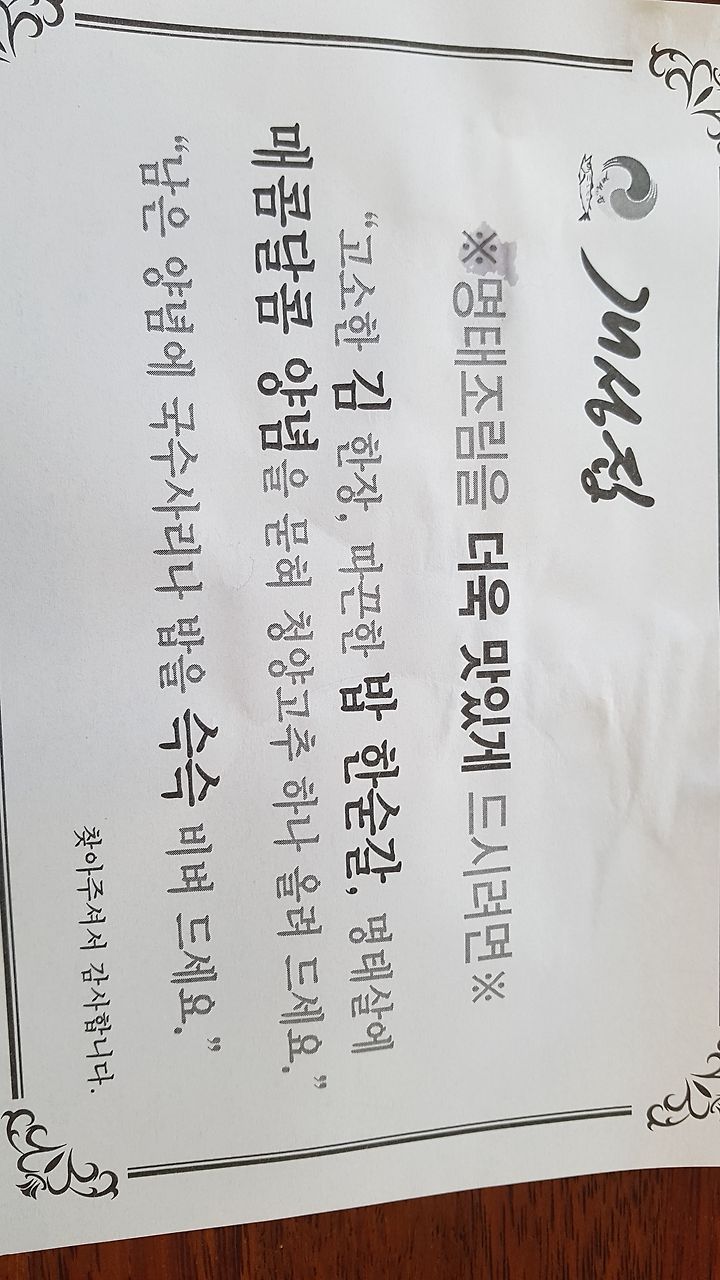 ※명태조림을 더욱 맛있게 드시려면※
“고소한 김 한장, 따끈한 밥 한숟갈, 명태살에
매콤달콤 양념을 묻혀 청양고추 하나 올려 드세요.”
“남은 양념에 국수사리나 밥을 슥슥 비벼 드세요.”
찾아주셔서 감사합니다.